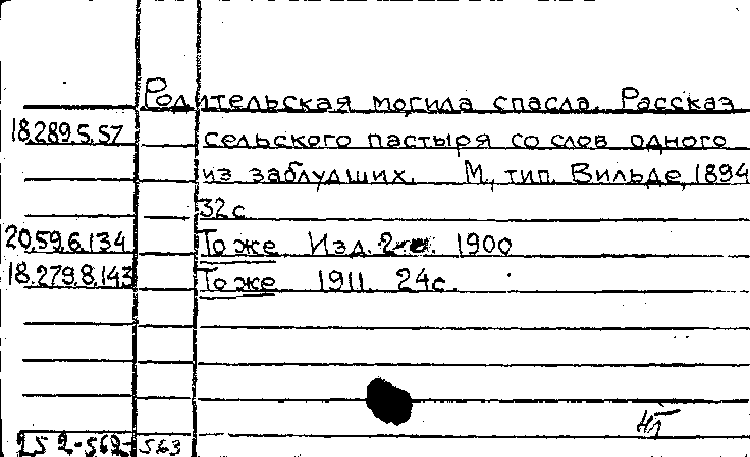 Родительская могила спасла. Рассказ
18.289.5.57 сельского пастыря со слов одного
из заблудших. М., тип. Вильде, 1894
32 с
20.59.6.134 То же Изд. 2-е. 1900
18.279.8.143 То же 1911. 24 с.